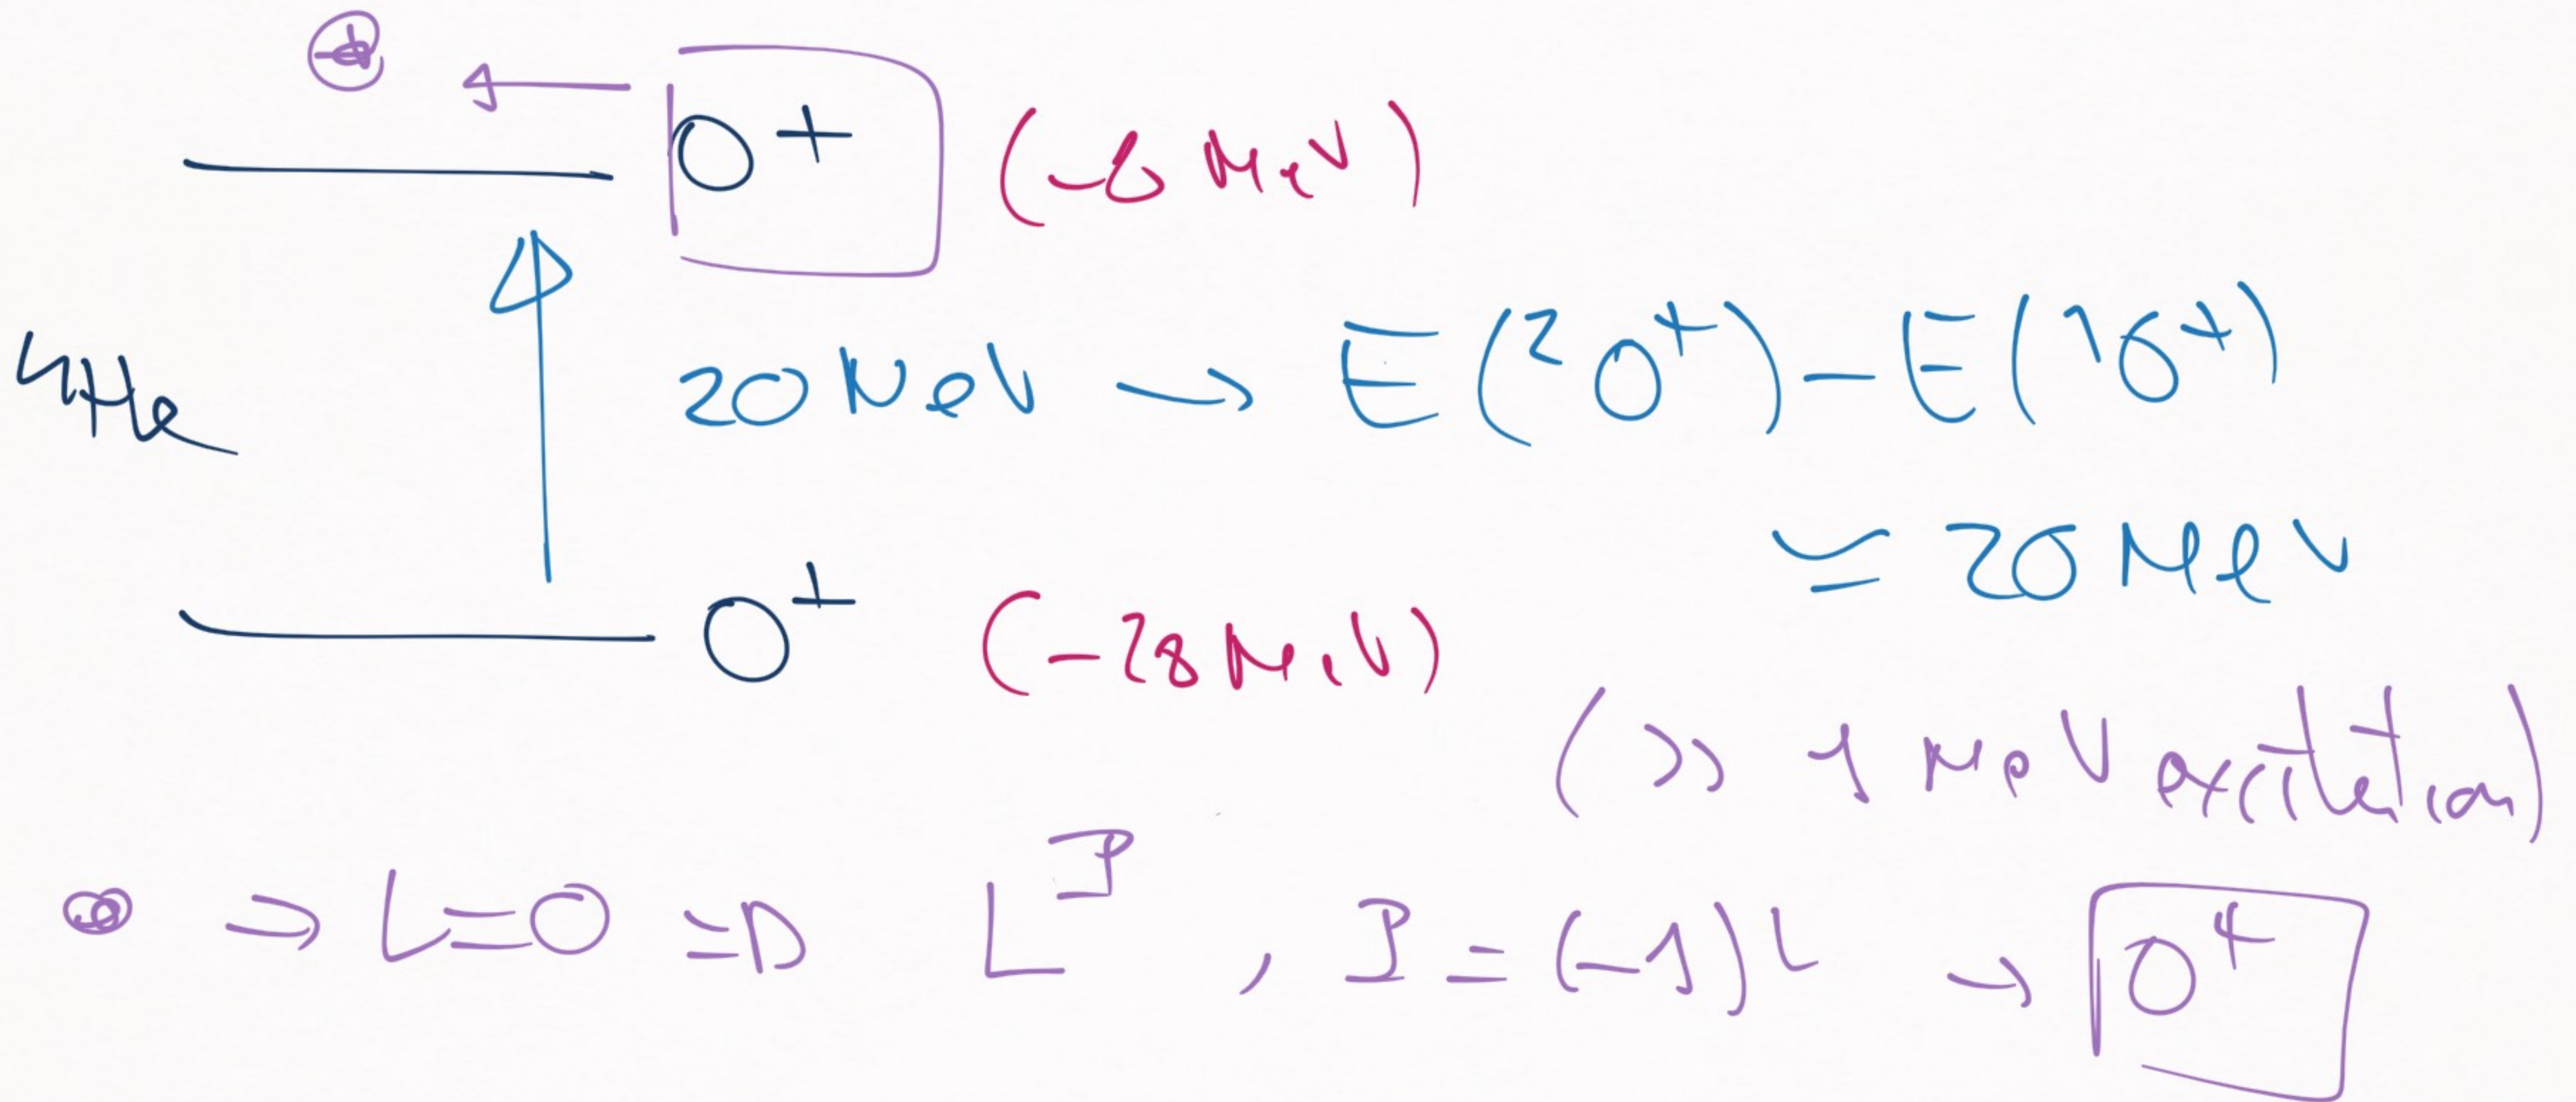 0⁺ (-8 MeV)
⁴He
20 MeV → E(²0⁺) - E(¹0⁺)
≃ 20 MeV
0⁺ (-28 MeV)
(>> 1 MeV excitation)
⇒ L=0 ⇒ L^P , P = (-1)^L → 0⁺